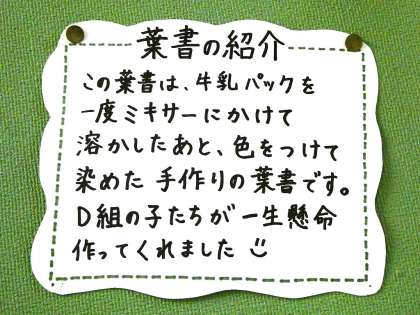 葉書の紹介
この葉書は、牛乳パックを
一度ミキサーにかけて
溶かしたあと、色をつけて
染めた 手作りの葉書です。
D組の子たちが一生懸命
作ってくれました